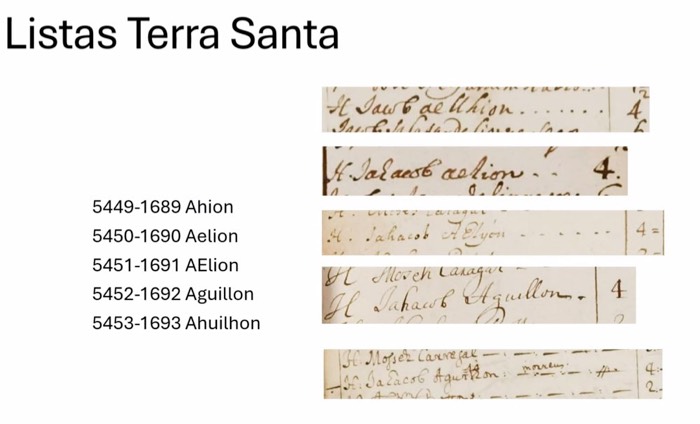 Listas Terra Santa
5449-1689 Ahion
5450-1690 Aelion
5451-1691 AElion
5452-1692 Aguillon
5453-1693 Ahuilhon
H Jacob ae Uhion....... 4
H. Jahacob aelion .. 4.
H. Jahacob AElyon ...... 4=
H Moseh
H Jahacob Aguillon. 4
H: Mosseh
H: Jahacob 4
2